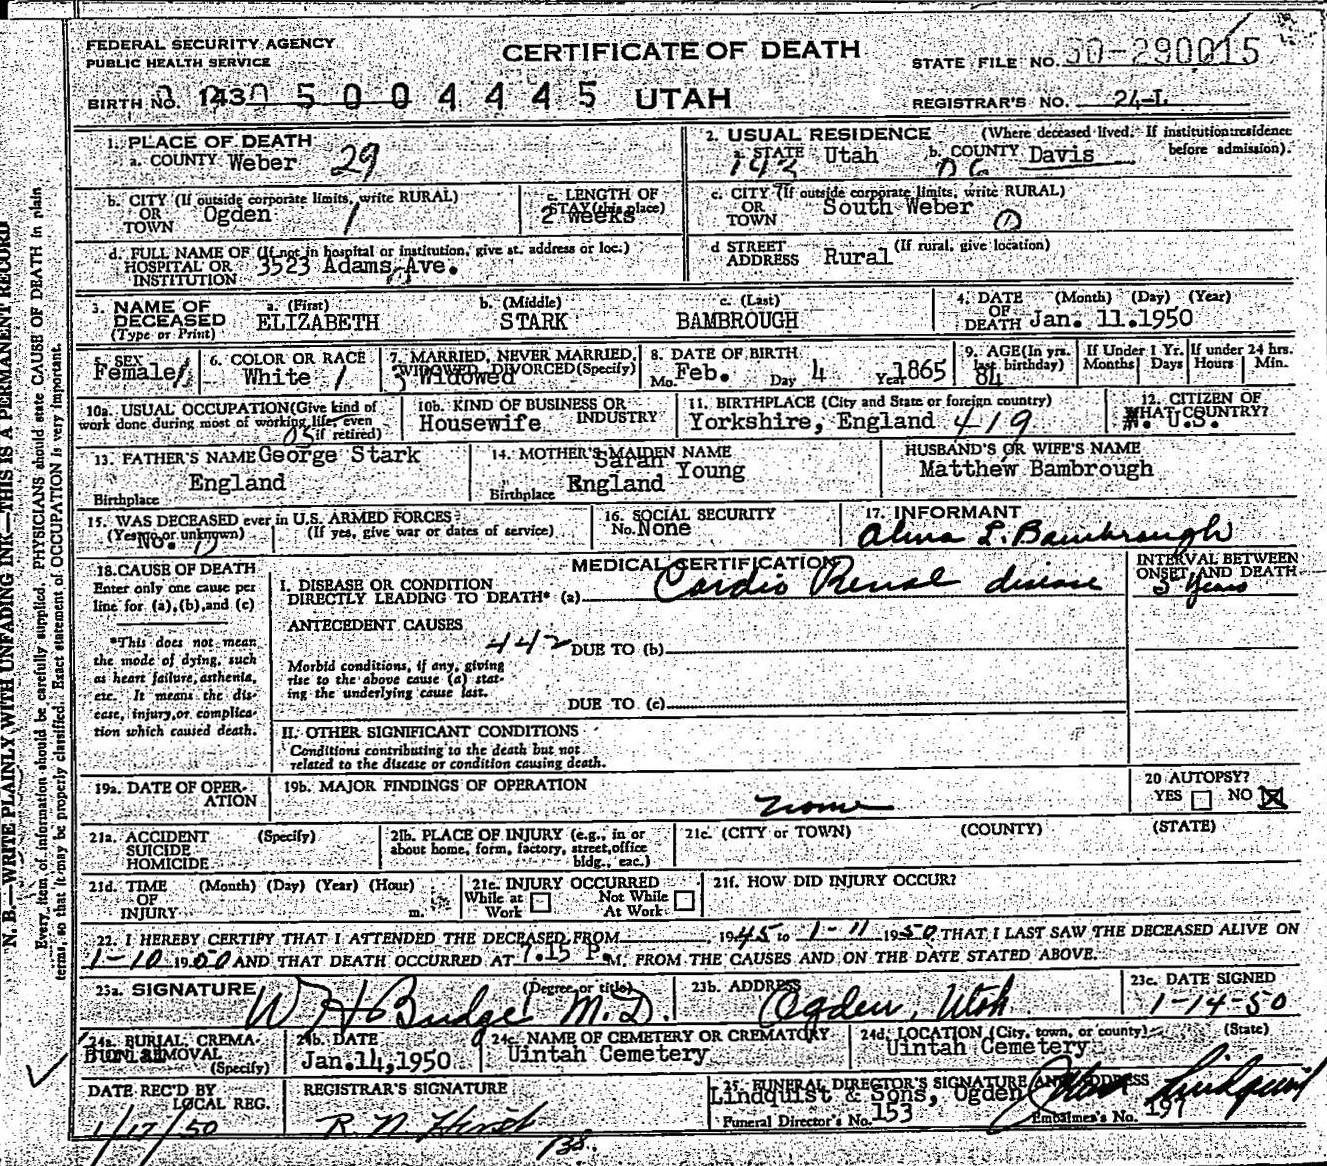 FEDERAL SECURITY AGENCY
PUBLIC HEALTH SERVICE
CERTIFICATE OF DEATH
STATE FILE NO. 50-290015
BIRTH NO. 1430 5004445 UTAH
REGISTRAR'S NO. 24-L
1. PLACE OF DEATH
a. COUNTY Weber 29
2. USUAL RESIDENCE (Where deceased lived. If institution: residence before admission).
a. STATE Utah b. COUNTY Davis
b. CITY (If outside corporate limits, write RURAL)
OR TOWN Ogden 1
c. LENGTH OF STAY (this place)
2 weeks
c. CITY (If outside corporate limits, write RURAL)
OR TOWN South Weber
d. FULL NAME OF (If not in hospital or institution, give st. address or loc.)
HOSPITAL OR INSTITUTION 3523 Adams Ave.
d STREET ADDRESS (If rural, give location)
Rural
3. NAME OF DECEASED (Type or Print)
a. (First) b. (Middle) c. (Last)
ELIZABETH STARK BAMBROUGH
4. DATE OF DEATH (Month) (Day) (Year)
Jan. 11.1950
5. SEX
Female 1
6. COLOR OR RACE
White 1
7. MARRIED, NEVER MARRIED, WIDOWED, DIVORCED (Specify)
3 Widowed
8. DATE OF BIRTH
Mo. Feb. Day 4 Year 1865
9. AGE (In yrs. last birthday)
84
If Under 1 Yr. Months Days
If under 24 hrs. Hours Min.
10a. USUAL OCCUPATION (Give kind of work done during most of working life, even if retired)
10b. KIND OF BUSINESS OR INDUSTRY
Housewife
11. BIRTHPLACE (City and State or foreign country)
Yorkshire, England 419
12. CITIZEN OF WHAT COUNTRY?
U.S.
13. FATHER'S NAME George Stark
Birthplace England
14. MOTHER'S MAIDEN NAME
Sarah Young
Birthplace England
HUSBAND'S OR WIFE'S NAME
Matthew Bambrough
15. WAS DECEASED ever in U.S. ARMED FORCES
(Yes, no or unknown) (If yes, give war or dates of service)
No.
16. SOCIAL SECURITY
No. None
17. INFORMANT
Alma L. Bambrough
18. CAUSE OF DEATH
Enter only one cause per line for (a), (b), and (c)
*This does not mean the mode of dying, such as heart failure, asthenia, etc. It means the disease, injury, or complication which caused death.
MEDICAL CERTIFICATION
I. DISEASE OR CONDITION DIRECTLY LEADING TO DEATH* (a) Cardio Renal disease
INTERVAL BETWEEN ONSET AND DEATH
5 Years
ANTECEDENT CAUSES
442 DUE TO (b)
Morbid conditions, if any, giving rise to the above cause (a) stating the underlying cause last.
DUE TO (c)
II. OTHER SIGNIFICANT CONDITIONS
Conditions contributing to the death but not related to the disease or condition causing death.
19a. DATE OF OPERATION
19b. MAJOR FINDINGS OF OPERATION
none
20 AUTOPSY?
YES NO
21a. ACCIDENT SUICIDE HOMICIDE (Specify)
21b. PLACE OF INJURY (e.g., in or about home, form, factory, street, office bldg., eac.)
21c. (CITY or TOWN) (COUNTY) (STATE)
21d. TIME OF INJURY (Month) (Day) (Year) (Hour) m.
21e. INJURY OCCURRED
While at Work Not While At Work
21f. HOW DID INJURY OCCUR?
22. I HEREBY CERTIFY THAT I ATTENDED THE DECEASED FROM , 1945 to 1-11 1950 THAT I LAST SAW THE DECEASED ALIVE ON
1-10 1950 AND THAT DEATH OCCURRED AT 7.15 P.M. FROM THE CAUSES AND ON THE DATE STATED ABOVE.
23a. SIGNATURE (Degree or title)
W H Budge M.D.
23b. ADDRESS
Ogden, Utah
23c. DATE SIGNED
1-14-50
24a. BURIAL, CREMATION, REMOVAL (Specify)
Burial
24b. DATE
Jan.14,1950
24c. NAME OF CEMETERY OR CREMATORY
Uintah Cemetery
24d. LOCATION (City, town, or county) (State)
Uintah Cemetery
DATE REC'D BY LOCAL REG.
1/17/50
REGISTRAR'S SIGNATURE
25. FUNERAL DIRECTOR'S SIGNATURE AND ADDRESS
Lindquist & Sons, Ogden
Lindquist
Funeral Director's No. 153
Embalmer's No. 197
N. B.—WRITE PLAINLY WITH UNFADING INK—THIS IS A PERMANENT RECORD
Every item of information should be carefully supplied. PHYSICIANS should state CAUSE OF DEATH in plain
terms, so that it may be properly classified. Exact statement of OCCUPATION is very important.